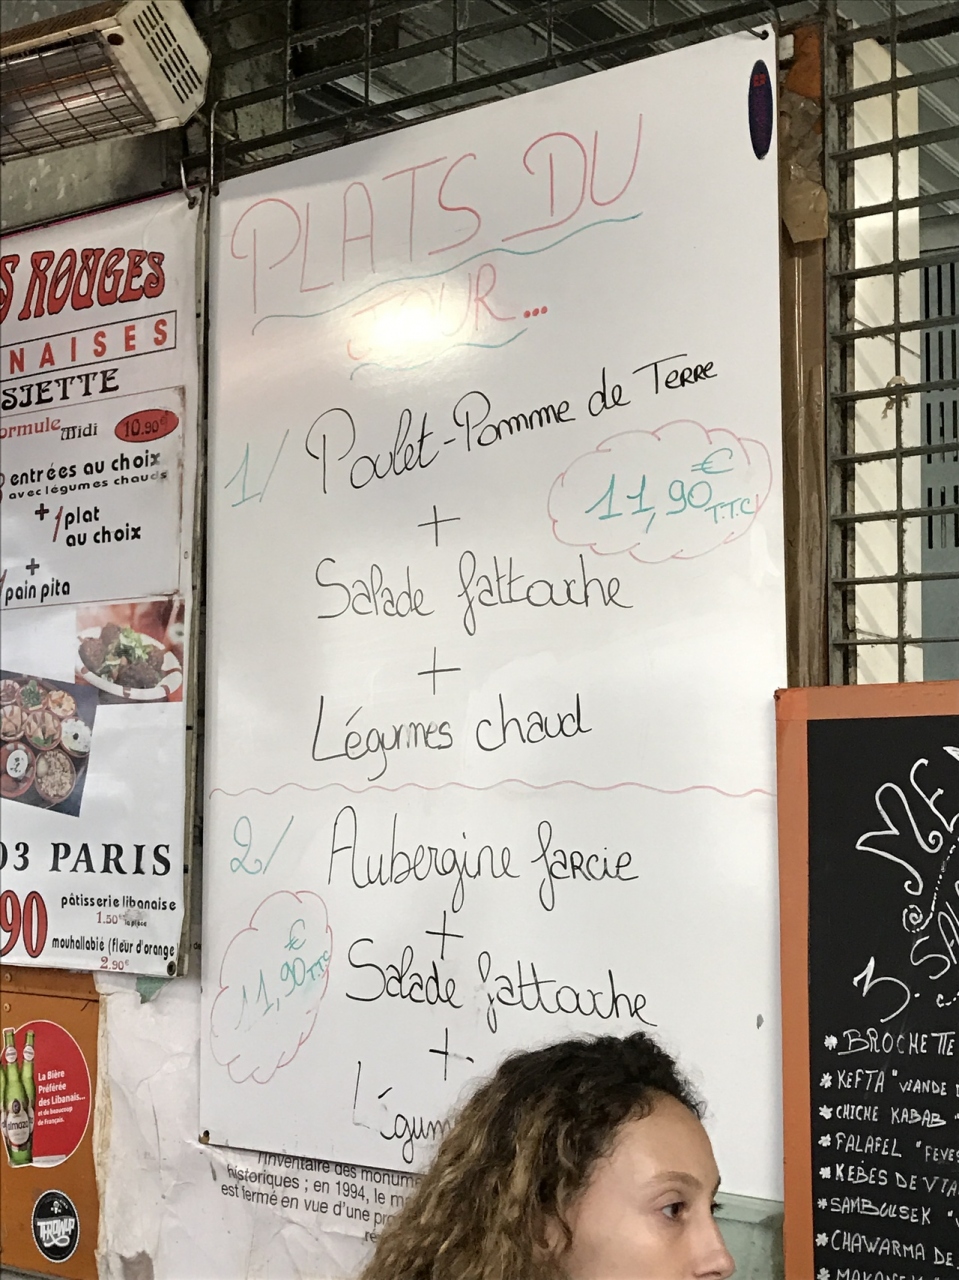 PLATS DU
JOUR...
1/ Poulet-Pomme de Terre
11,90€ T.T.C
+
Salade fattouche
+
Légumes chaud
2/ Aubergine farcie
+
11,90€ T.T.C
Salade fattouche
+
Légum
S ROUGES
NAISES
SIETTE
ormule Midi 10.90€
3 entrées au choix
avec légumes chauds
+1 plat
au choix
+
1 pain pita
03 PARIS
90
pâtisserie libanaise
1.50€ la pièce
mouhallabié (fleur d'orange
2.90€
La Bière
Préférée
des Libanais...
et de beaucoup
de français.
almaza
l'inventaire des monume
historiques ; en 1994, le m
est fermé en vue d'une pro
ré
ME
3. SA
* BROCHETTE
* KEFTA "VIANDE
* CHICHE KABAB "
* FALAFEL "FEVES
* KEBES DE VIA
* SAMBOUSEK "
* CHAWARMA DE